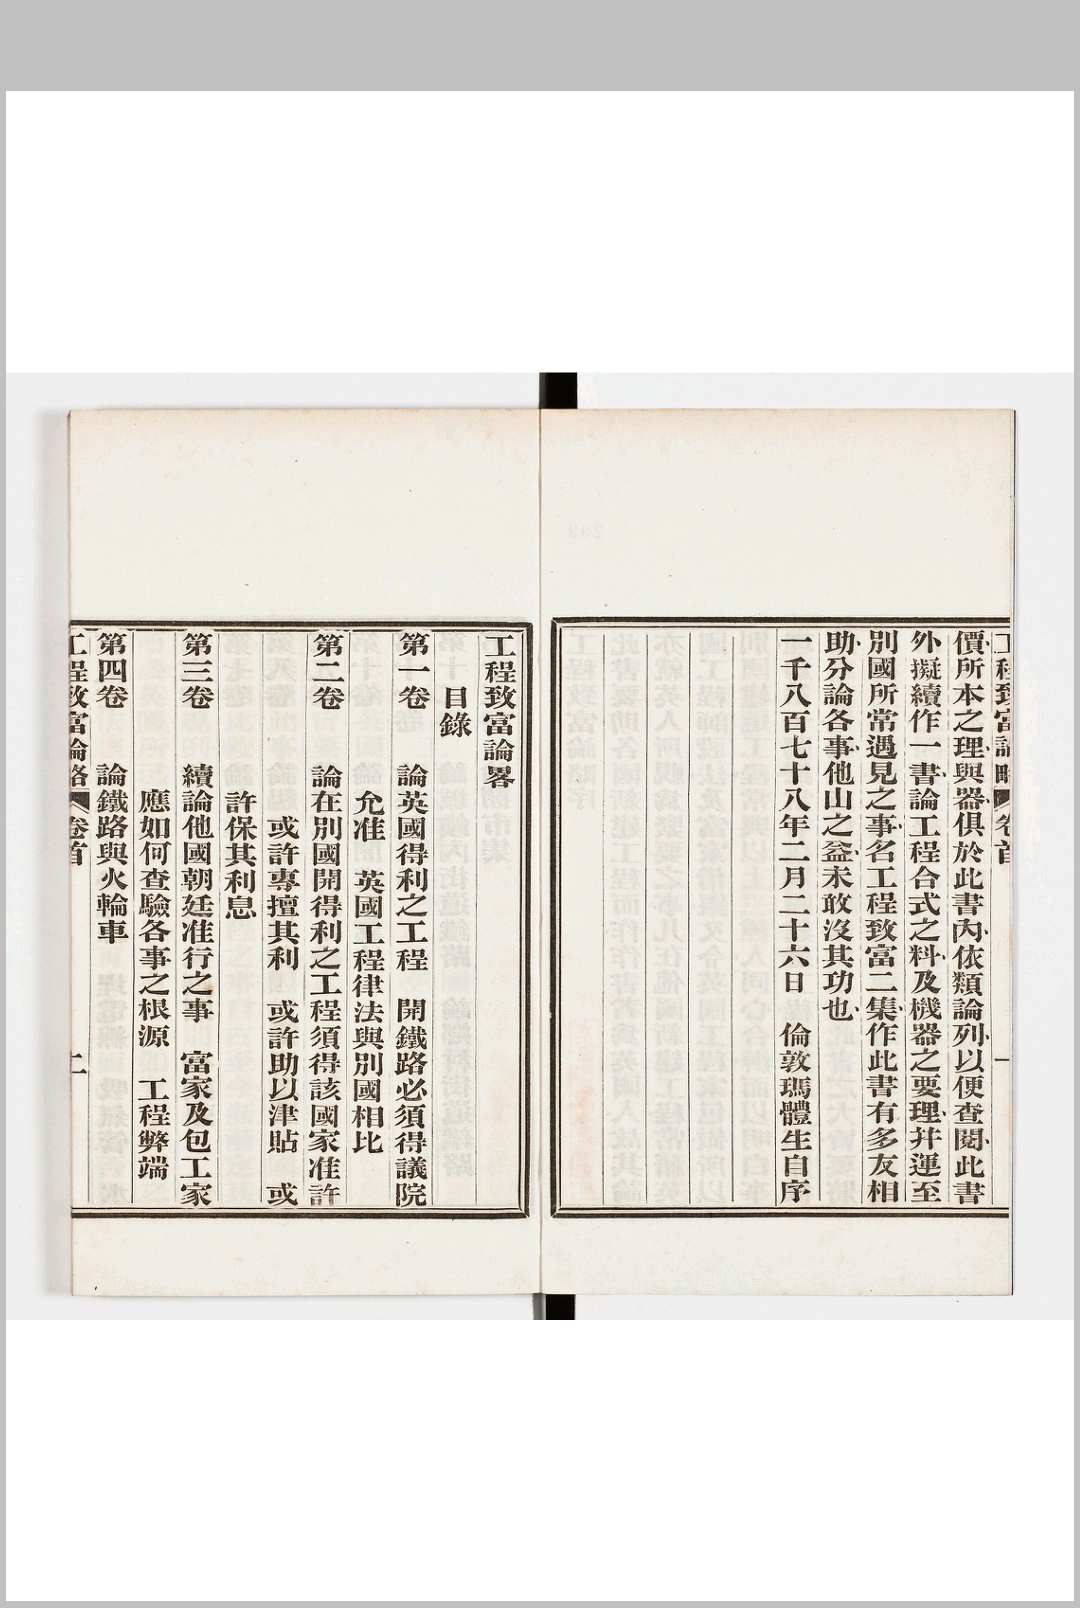 工程致富論略 卷首 一
價所本之理與器俱於此書內依類論列以便查閱此書
外擬續作一書論工程合式之料及機器之要理幷運至
別國所常遇見之事名工程致富二集作此書有多友相
助分論各事他山之益未敢沒其功也
一千八百七十八年二月二十六日 倫敦瑪體生自序
工程致富論畧
目錄
第一卷 論英國得利之工程 開鐵路必須得議院
允准 英國工程律法與別國相比
第二卷 論在別國開得利之工程須得該國家准許
或許專擅其利 或許助以津貼 或
許保其利息
第三卷 續論他國朝廷准行之事 富家及包工家
應如何查驗各事之根源 工程弊端
第四卷 論鐵路與火輪車
工程致富論略 卷首